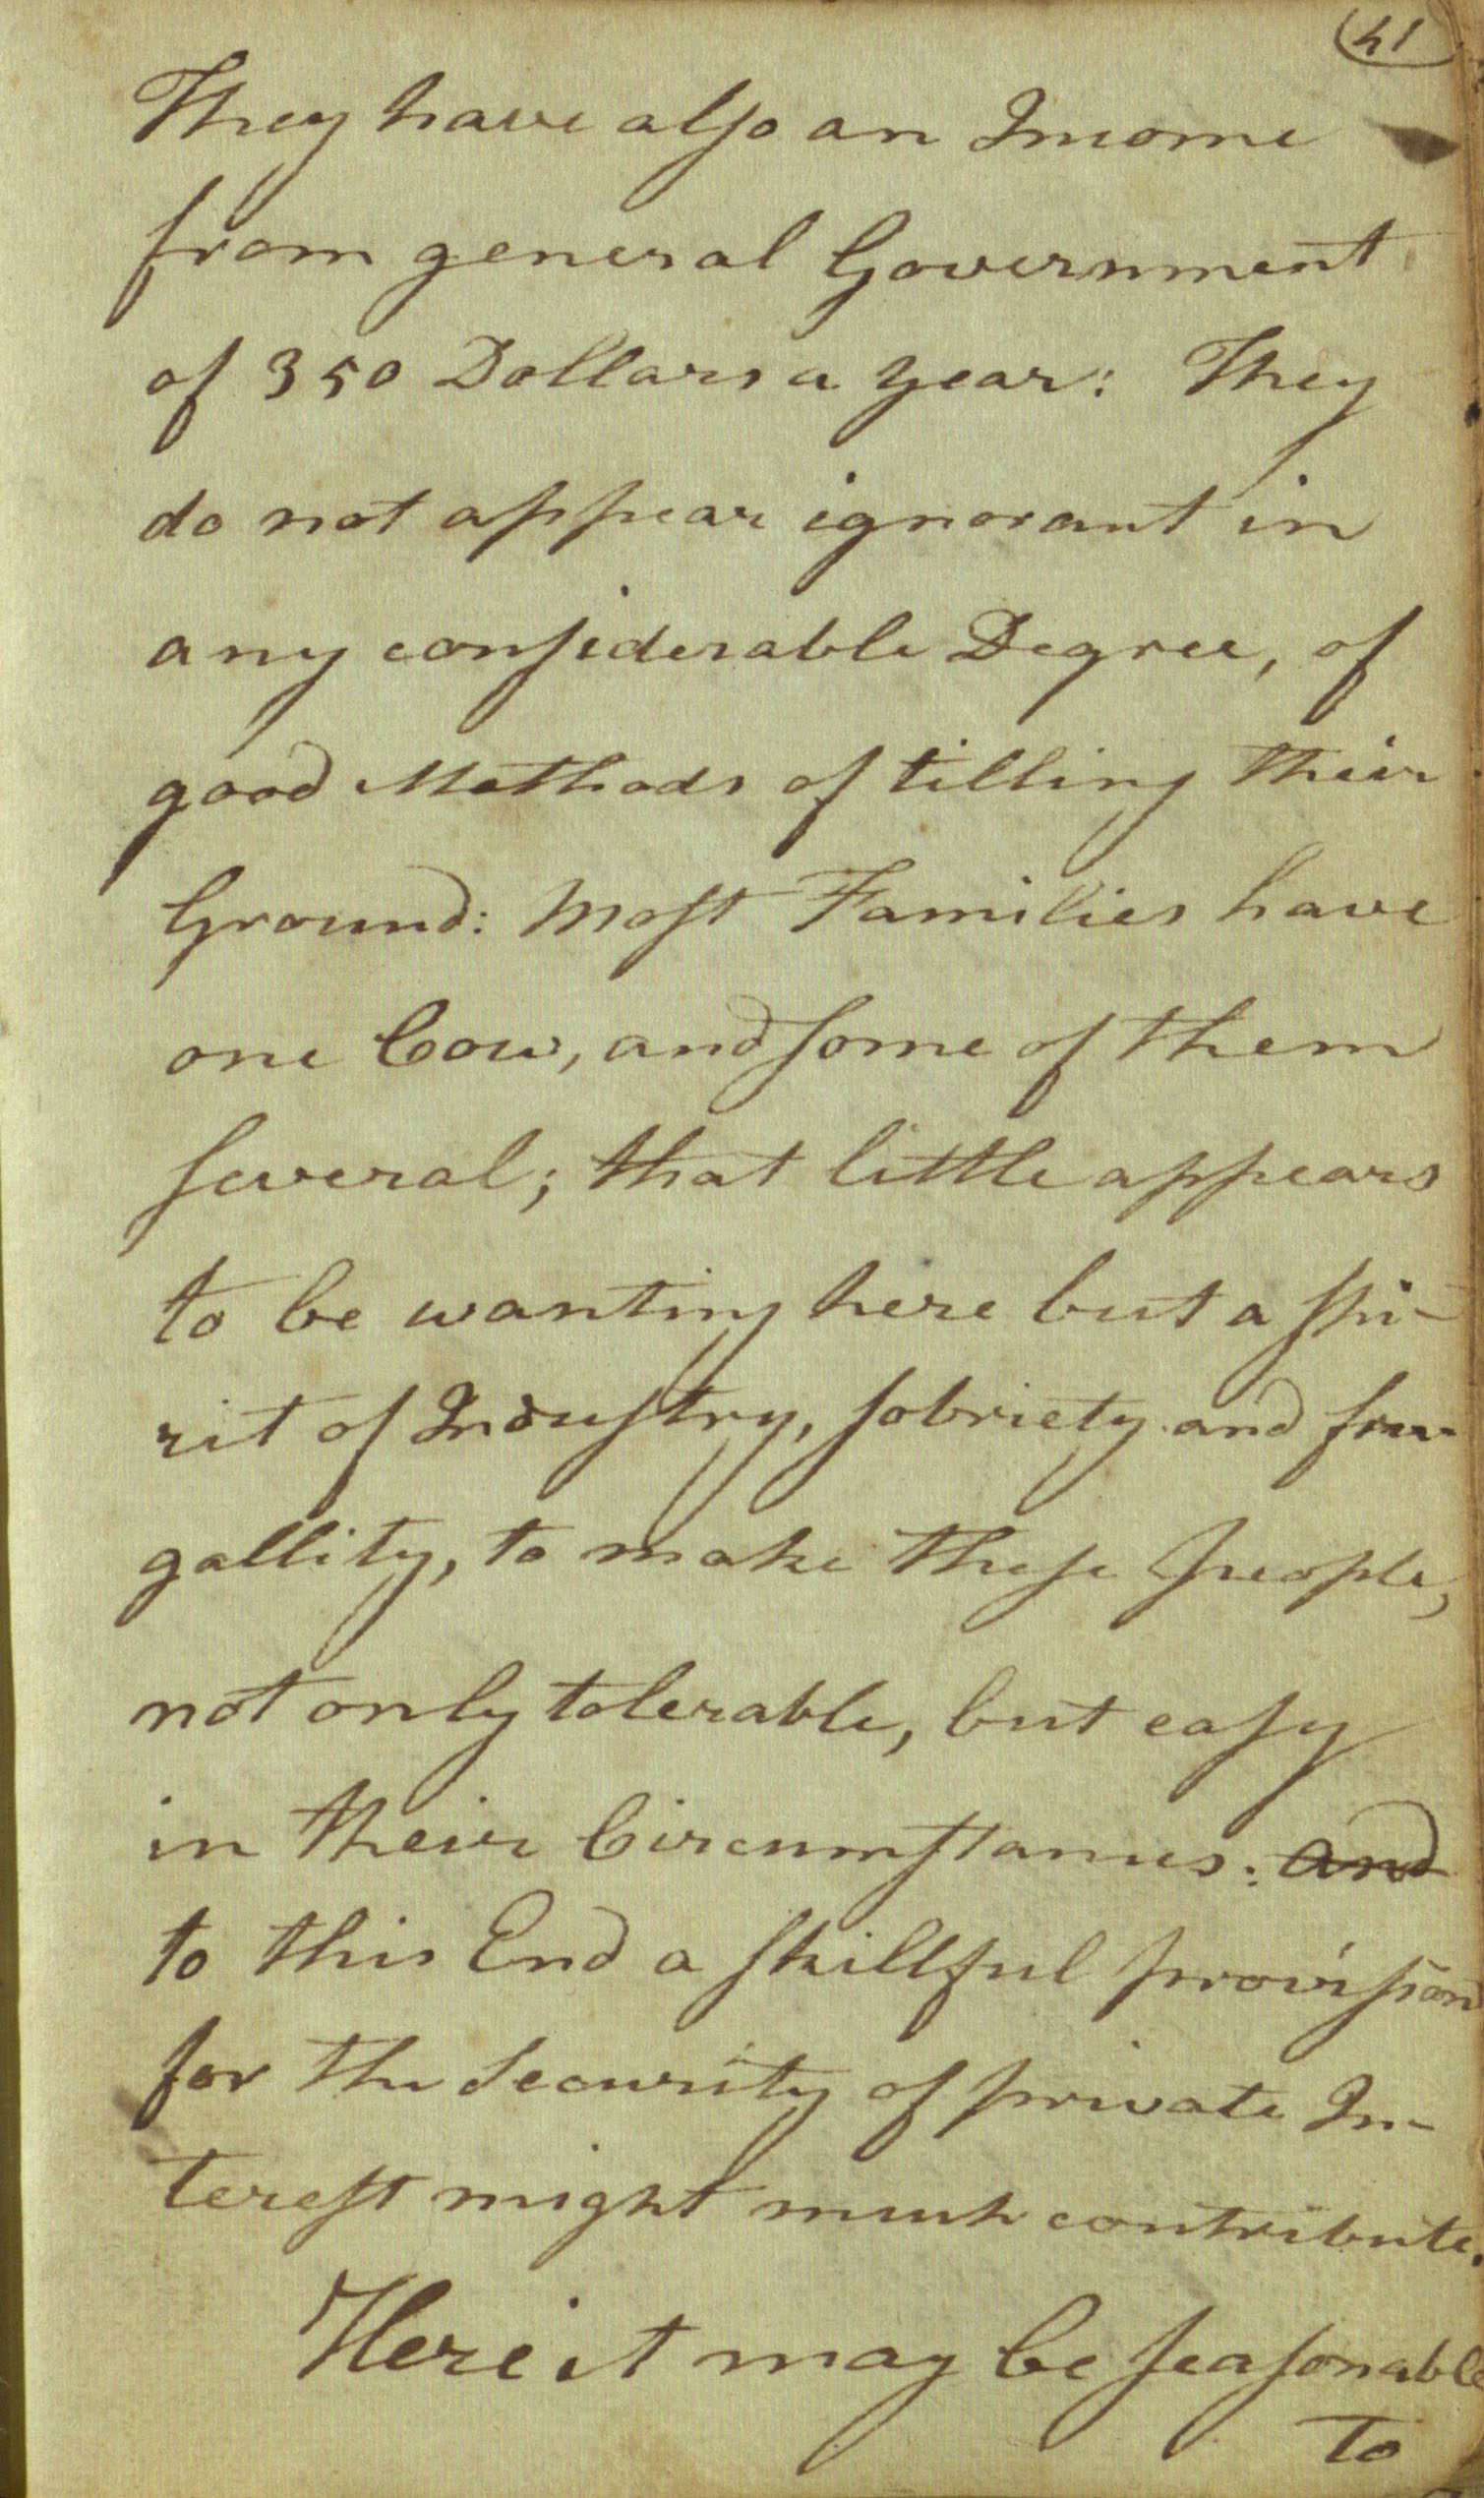 41
They have also an Income
from general Government
of 350 Dollars a year: They
do not appear ignorant in
any considerable Degree, of
good Methods of tilling their
Ground: Most Families have
one Cow, and some of them
several; that little appears
to be wanting here but a spi-
rit of Industry, sobriety and fru-
gallity, to make these people,
not only tolerable, but easy
in their Circumstances: and
to this End a skillful provision
for the Security of private In-
terest might much contribute.
Here it may be seasonable
to